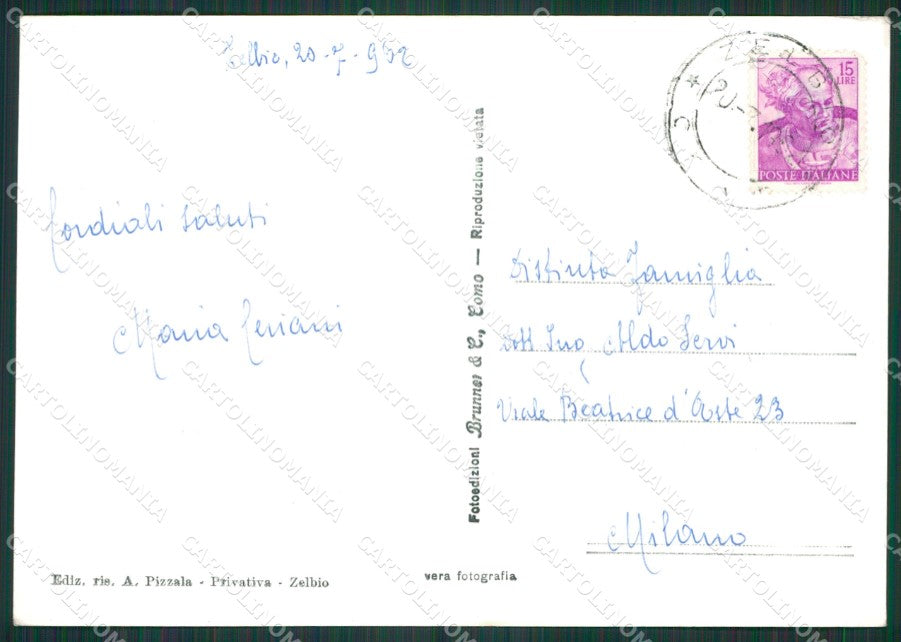 Zelbio, 20-7-962
15
LIRE
POSTE ITALIANE
ZELBIO
COMO
Cordiali saluti
Maria
Distinta Famiglia
Dott Ing Aldo Servi
Viale Beatrice d'Este 23
Milano
Fotoedizioni Brunner & C., Como — Riproduzione vietata
Ediz. ris. A. Pizzala - Privativa - Zelbio
vera fotografia
CARTOLINOMANIA